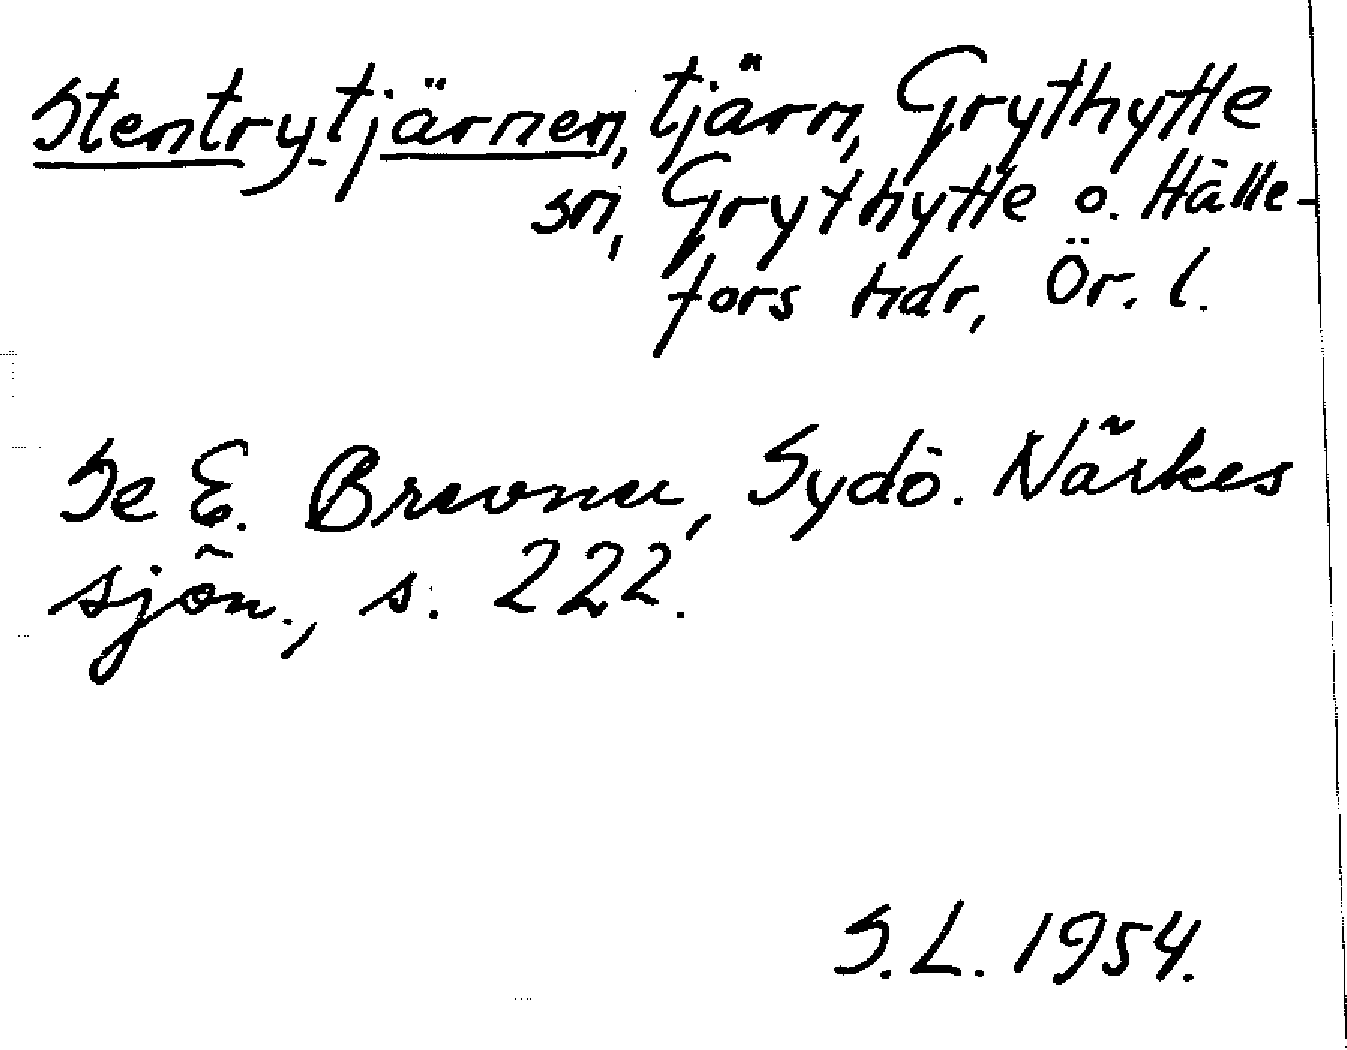 Stentrytjärnen, tjärn, Grythytte
sn, Grythytte o. Hälle-
fors hdr, Ör. l.
Se E. Brevner, Sydö. Närkes
sjön., s. 222.
S.L. 1954.